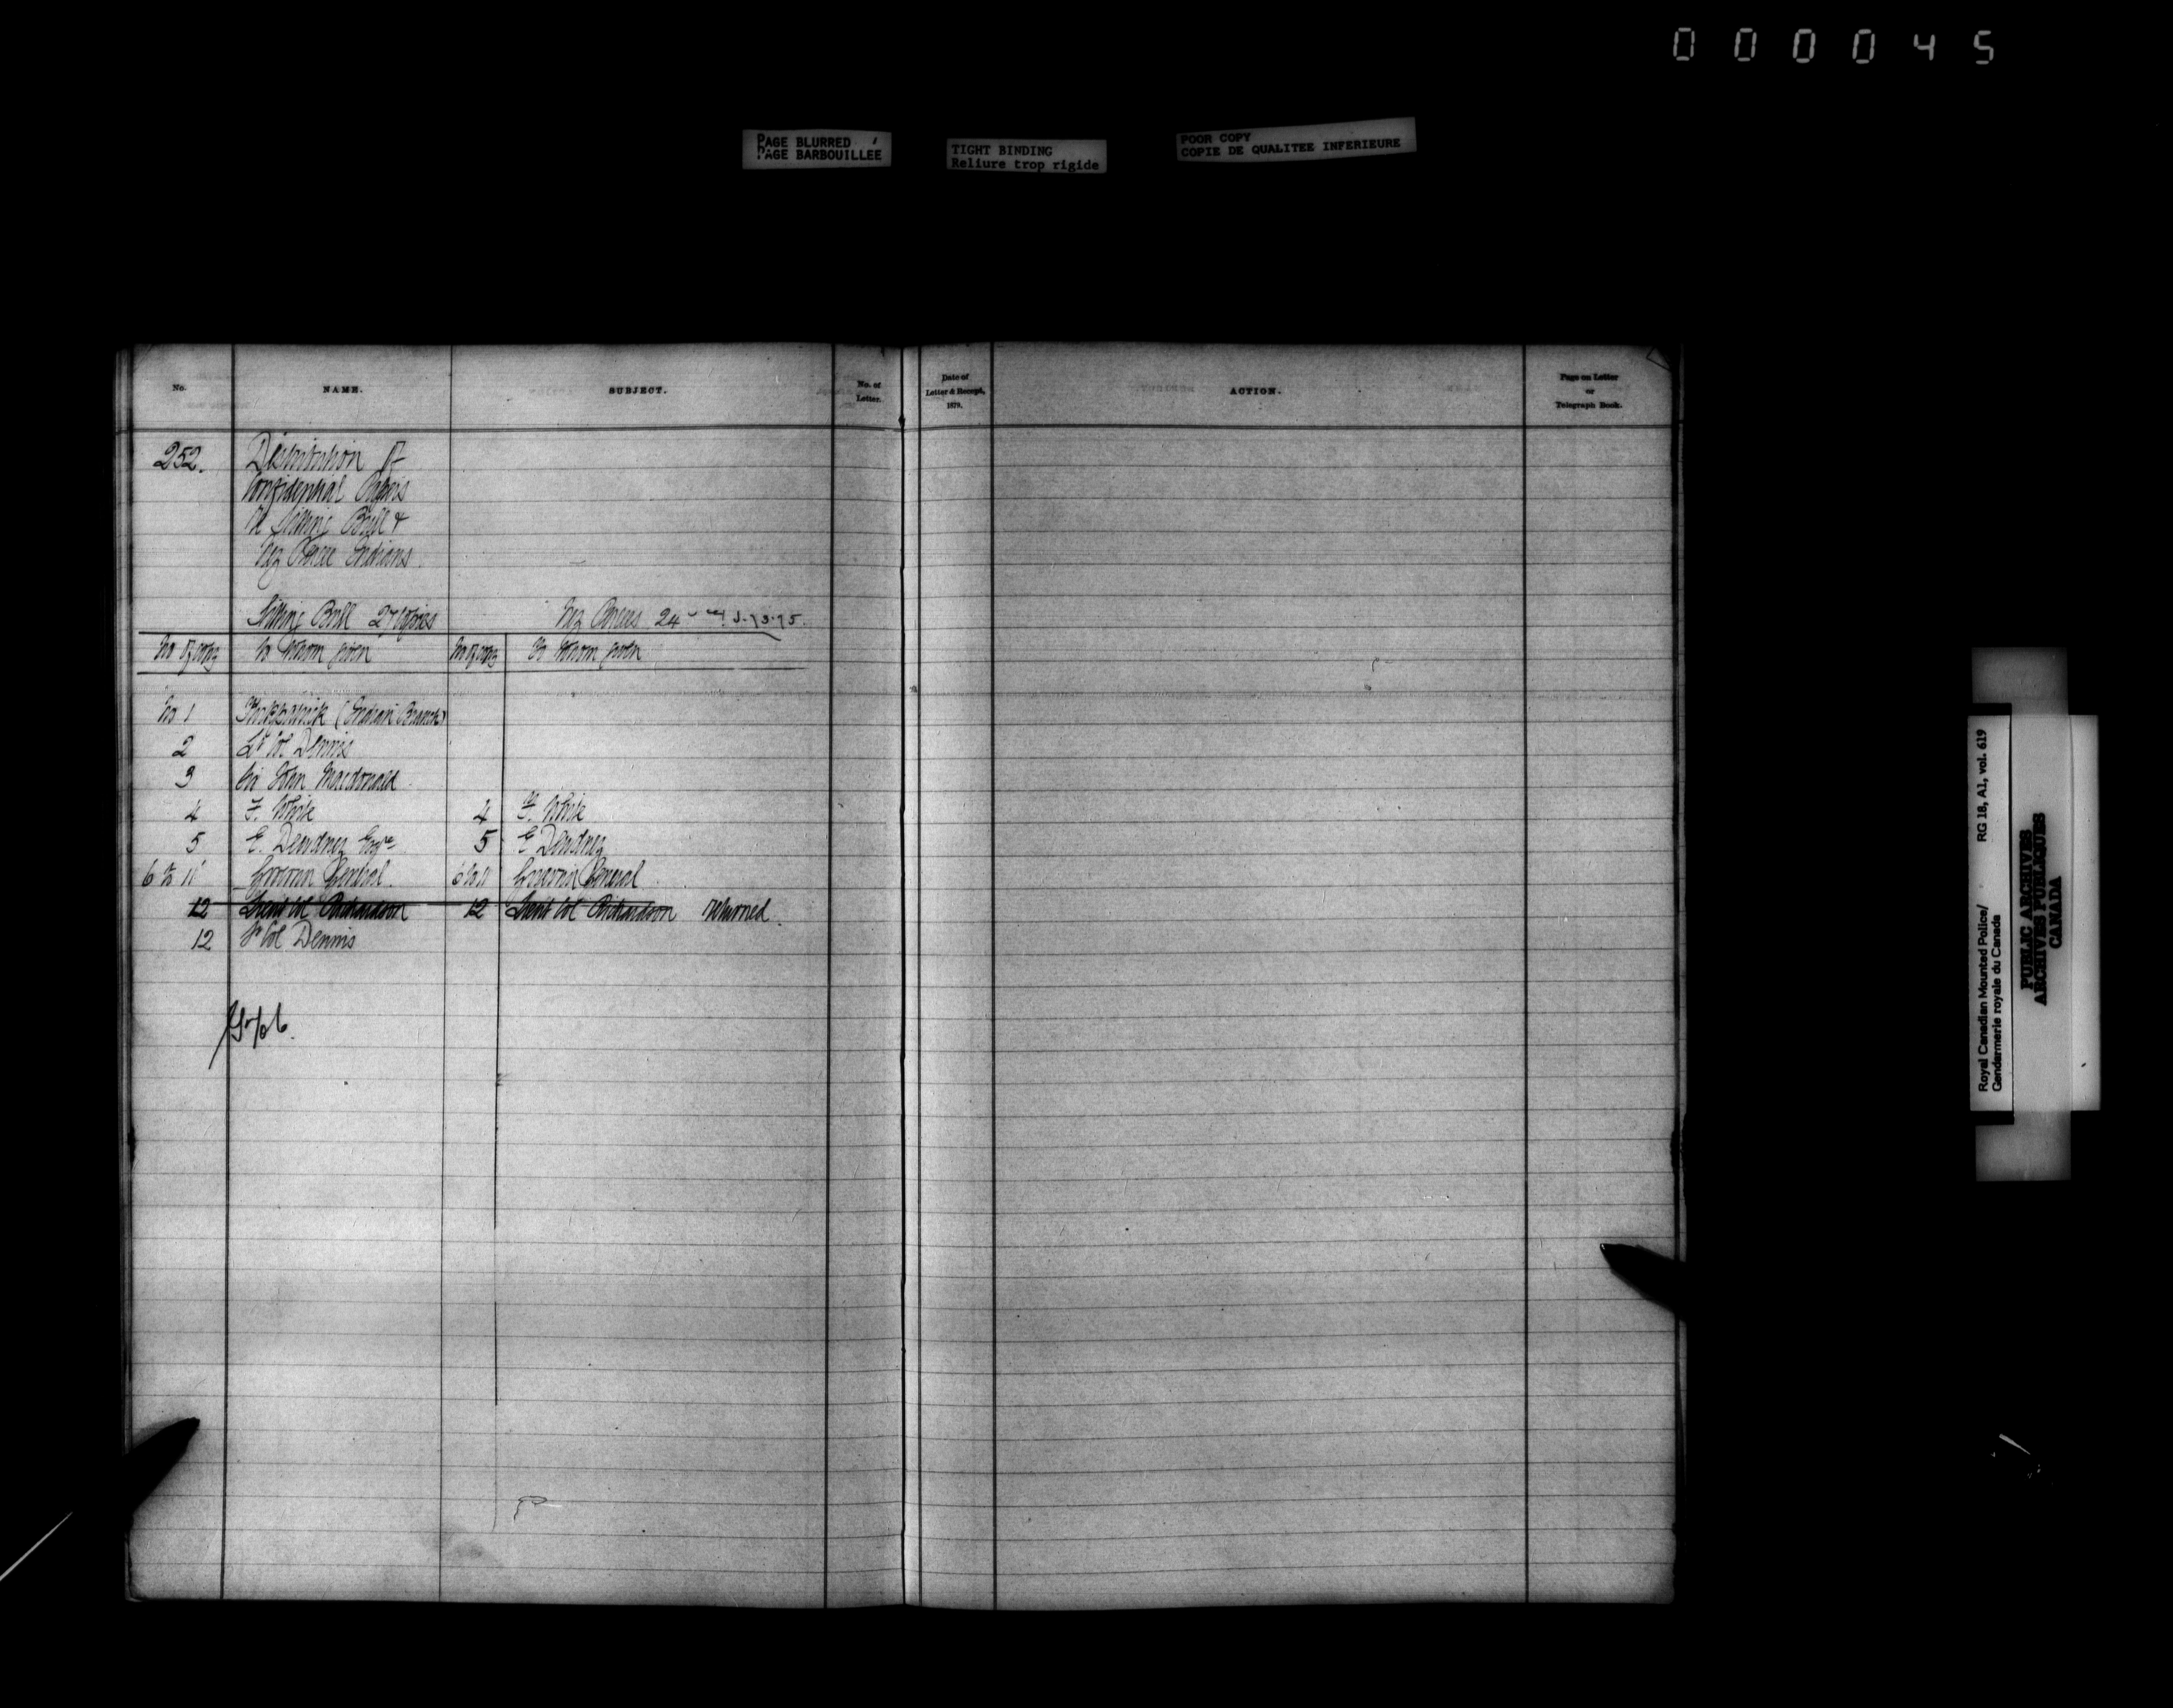 000045
PAGE BLURRED
PAGE BARBOUILLEE
TIGHT BINDING
Reliure trop rigide
POOR COPY
COPIE DE QUALITEE INFERIEURE
No. NAME. SUBJECT. No. of Letter. Date of Letter & Receipt, 1879. ACTION. Page on Letter or Telegraph Book.
252. Distribution of
Confidential Papers
re Sitting Bull &
Nez Perce Indians.
Sitting Bull 24 Copies Nez Perces 24
No of copy To whom given No of copy To whom given
No 1 (Indian Branch)
2 Lt Col Dennis
3 Sir John Macdonald
4 F. White 4 F. White
5 E. Dewdney Esqre 5 E Dewdney
6 to 11 Governor General 6 to 11 Governor General
12 Lieut Col Richardson 12 Lieut Col Richardson Returned
12 Lt Col Dennis
Royal Canadian Mounted Police/ RG 18, A1, vol. 619
Gendarmerie royale du Canada
PUBLIC ARCHIVES
ARCHIVES PUBLIQUES
CANADA